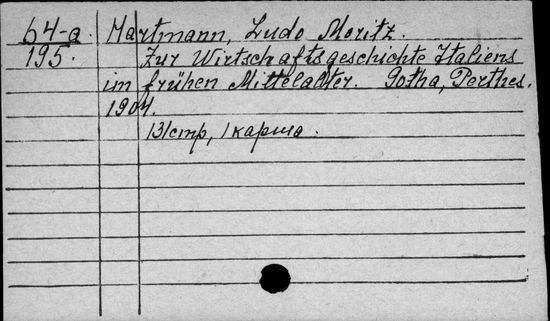 64-a. Hartmann, Ludo Moritz.
195. Zur Wirtschaftsgeschichte Italiens
im frühen Mittelalter. Gotha, Perthes.
1904.
131стр, 1 карта.